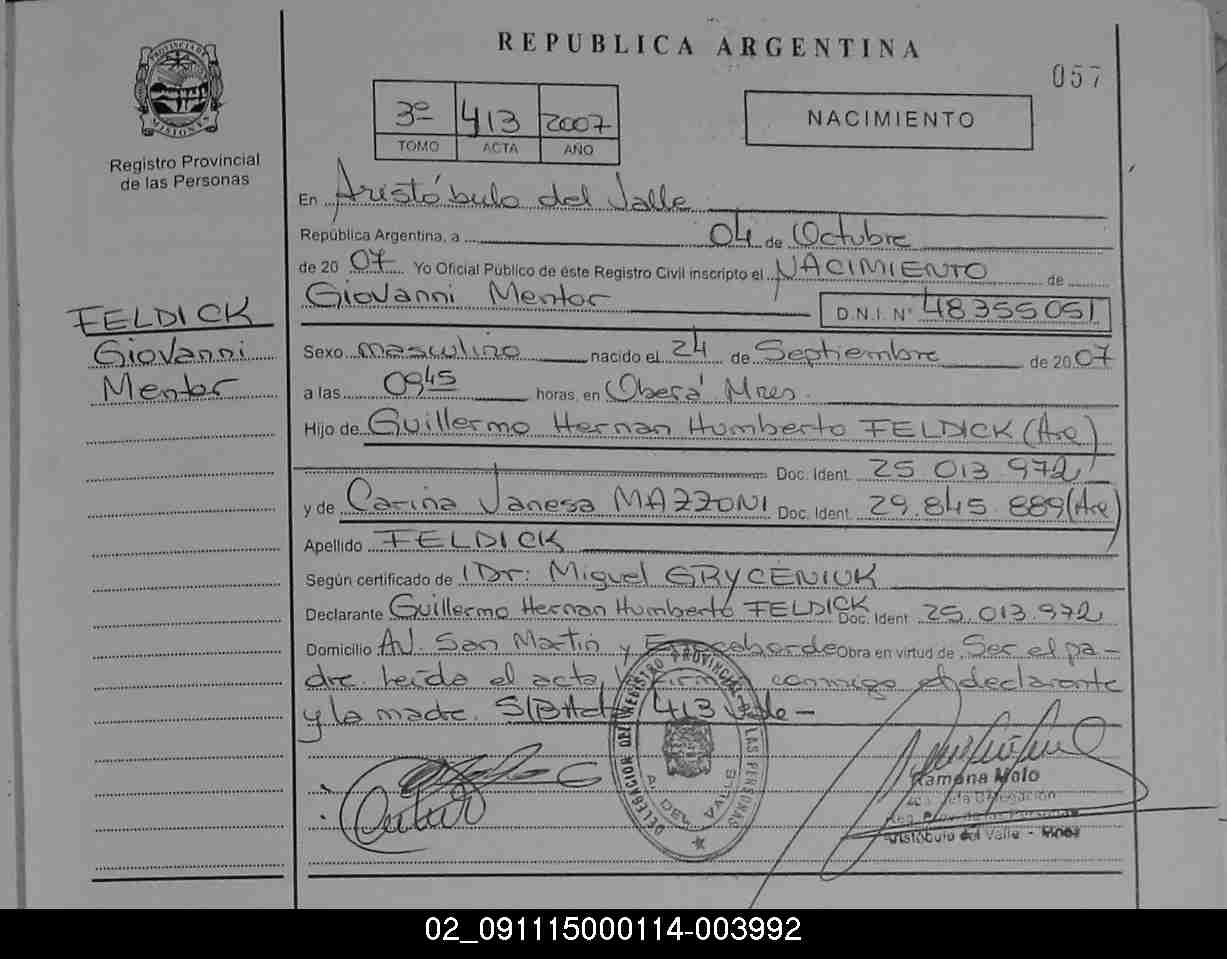 REPUBLICA ARGENTINA
057
PROVINCIA DE
MISIONES
Registro Provincial
de las Personas
3º 413 2007
TOMO ACTA AÑO
NACIMIENTO
En Aristóbulo del Valle
República Argentina, a 04 de Octubre
de 20 07 Yo Oficial Público de éste Registro Civil inscripto el NACIMIENTO de
Giovanni Mentor D.N.I. Nº 48355051
FELDICK
Giovanni
Mentor
Sexo masculino nacido el 24 de Septiembre de 20 07
a las 0945 horas, en Oberá Mnes.
Hijo de Guillermo Hernan Humberto FELDICK (Arg)
Doc. Ident. 25.013.972
y de Carina Vanesa MAZZONI Doc. Ident. 29.845.889 (Arg)
Apellido FELDICK
Según certificado de Dr: Miguel GRYCENIUK
Declarante Guillermo Hernan Humberto FELDICK Doc. Ident. 25.013.972
Domicilio Av. San Martín y Obra en virtud de Ser el pa-
dre. Leída el acta, conmigo el declarante
y la madre. 413 Valle -
DELEGACION DEL REGISTRO PROVINCIAL DE LAS PERSONAS
A. DEL VALLE
Ramona Melo
Jefa Delegación
Reg. Prov. de las Personas
Aristóbulo del Valle - Mnes
02_091115000114-003992